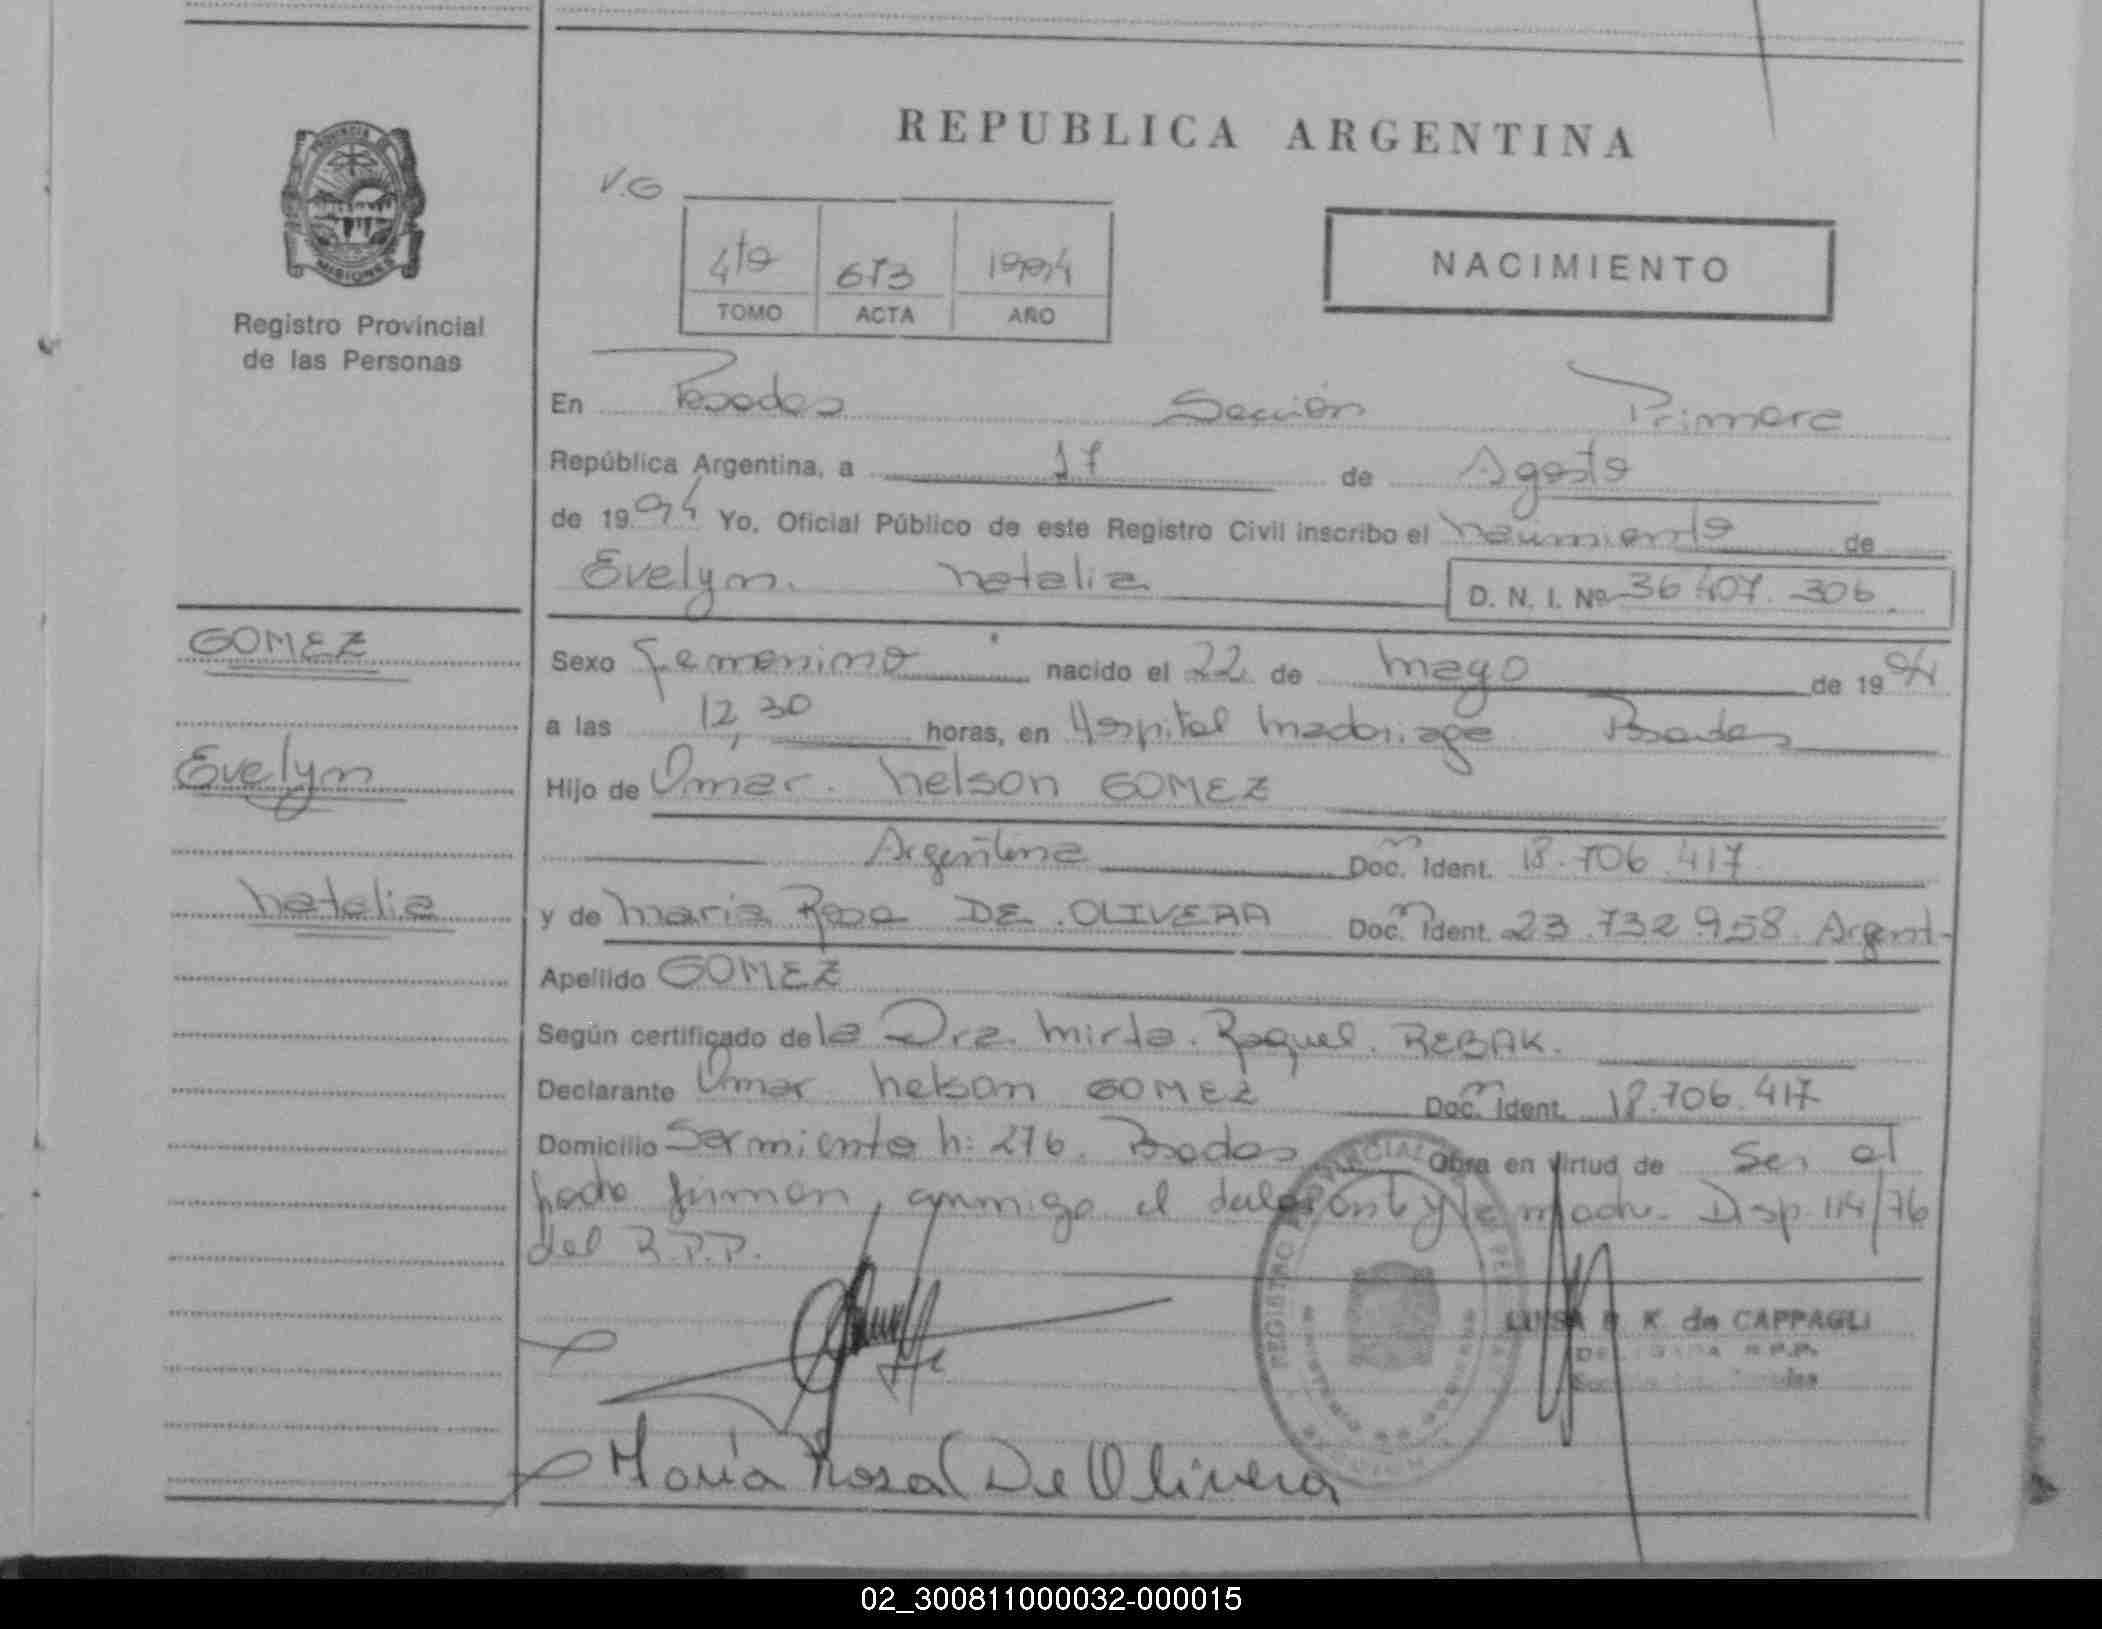 REPUBLICA ARGENTINA
V.G
4to 673 1994
TOMO ACTA AÑO
NACIMIENTO
PROVINCIA DE
MISIONES
Registro Provincial
de las Personas
En Posadas Sección Primera
República Argentina, a 17 de Agosto
de 1994 Yo, Oficial Público de este Registro Civil inscribo el nacimiento de
Evelyn Natalia D. N. I. Nº 36.407.306
GOMEZ
Evelyn
Natalia
Sexo femenino nacido el 22 de mayo de 1994
a las 12,30 horas, en Hospital Madariaga Posadas
Hijo de Omar Nelson GOMEZ
Argentina Doc. Ident. 18.706.417
y de Maria Rosa DE OLIVERA Doc. Ident. 23.732.958 Argent-
Apellido GOMEZ
Según certificado de la Dra. Mirta Raquel REBAK.
Declarante Omar Nelson GOMEZ Doc. Ident. 18.706.417
Domicilio Sarmiento n: 276. Posadas Obra en virtud de Ser el
padre firman, conmigo el y la madre. Disp. 114/76
del R.P.P.
LUISA K. de CAPPAGLI
R.P.P.
María Rosa De Olivera
02_300811000032-000015